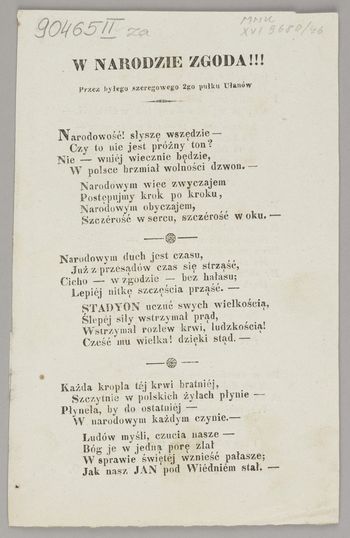 90465 II za
MNK
XVI 5680/76
W NARODZIE ZGODA!!!
Przez byłego szeregowego 2go pułku Ułanów
Narodowość! słyszę wszędzie —
Czy to nie jest próżny ton?
Nie — wniéj wiecznie będzie,
W polsce brzmiał wolności dzwon. —
Narodowym więc zwyczajem
Postępujmy krok po kroku,
Narodowym obyczajem,
Szczérość w sercu, szczérość w oku. —
Narodowym duch jest czasu,
Już z przesądów czas się strząść,
Cicho — w zgodzie — bez hałasu;
Lepiéj nitkę szczęścia prząść. —
STADYON uczuć swych wielkością,
Ślepéj siły wstrzymał prąd,
Wstrzymał rozlew krwi, ludzkością!
Cześć mu wielka! dzięki stąd. —
Każda kropla téj krwi bratniéj,
Szczytnie w polskich żyłach płynie —
Płynęła, by do ostatniéj —
W narodowym każdym czynie. —
Ludów myśli, czucia nasze —
Bóg je w jedną porę zlał
W sprawie świętéj wznieść pałasze;
Jak nasz JAN pod Wiédniém stał. —